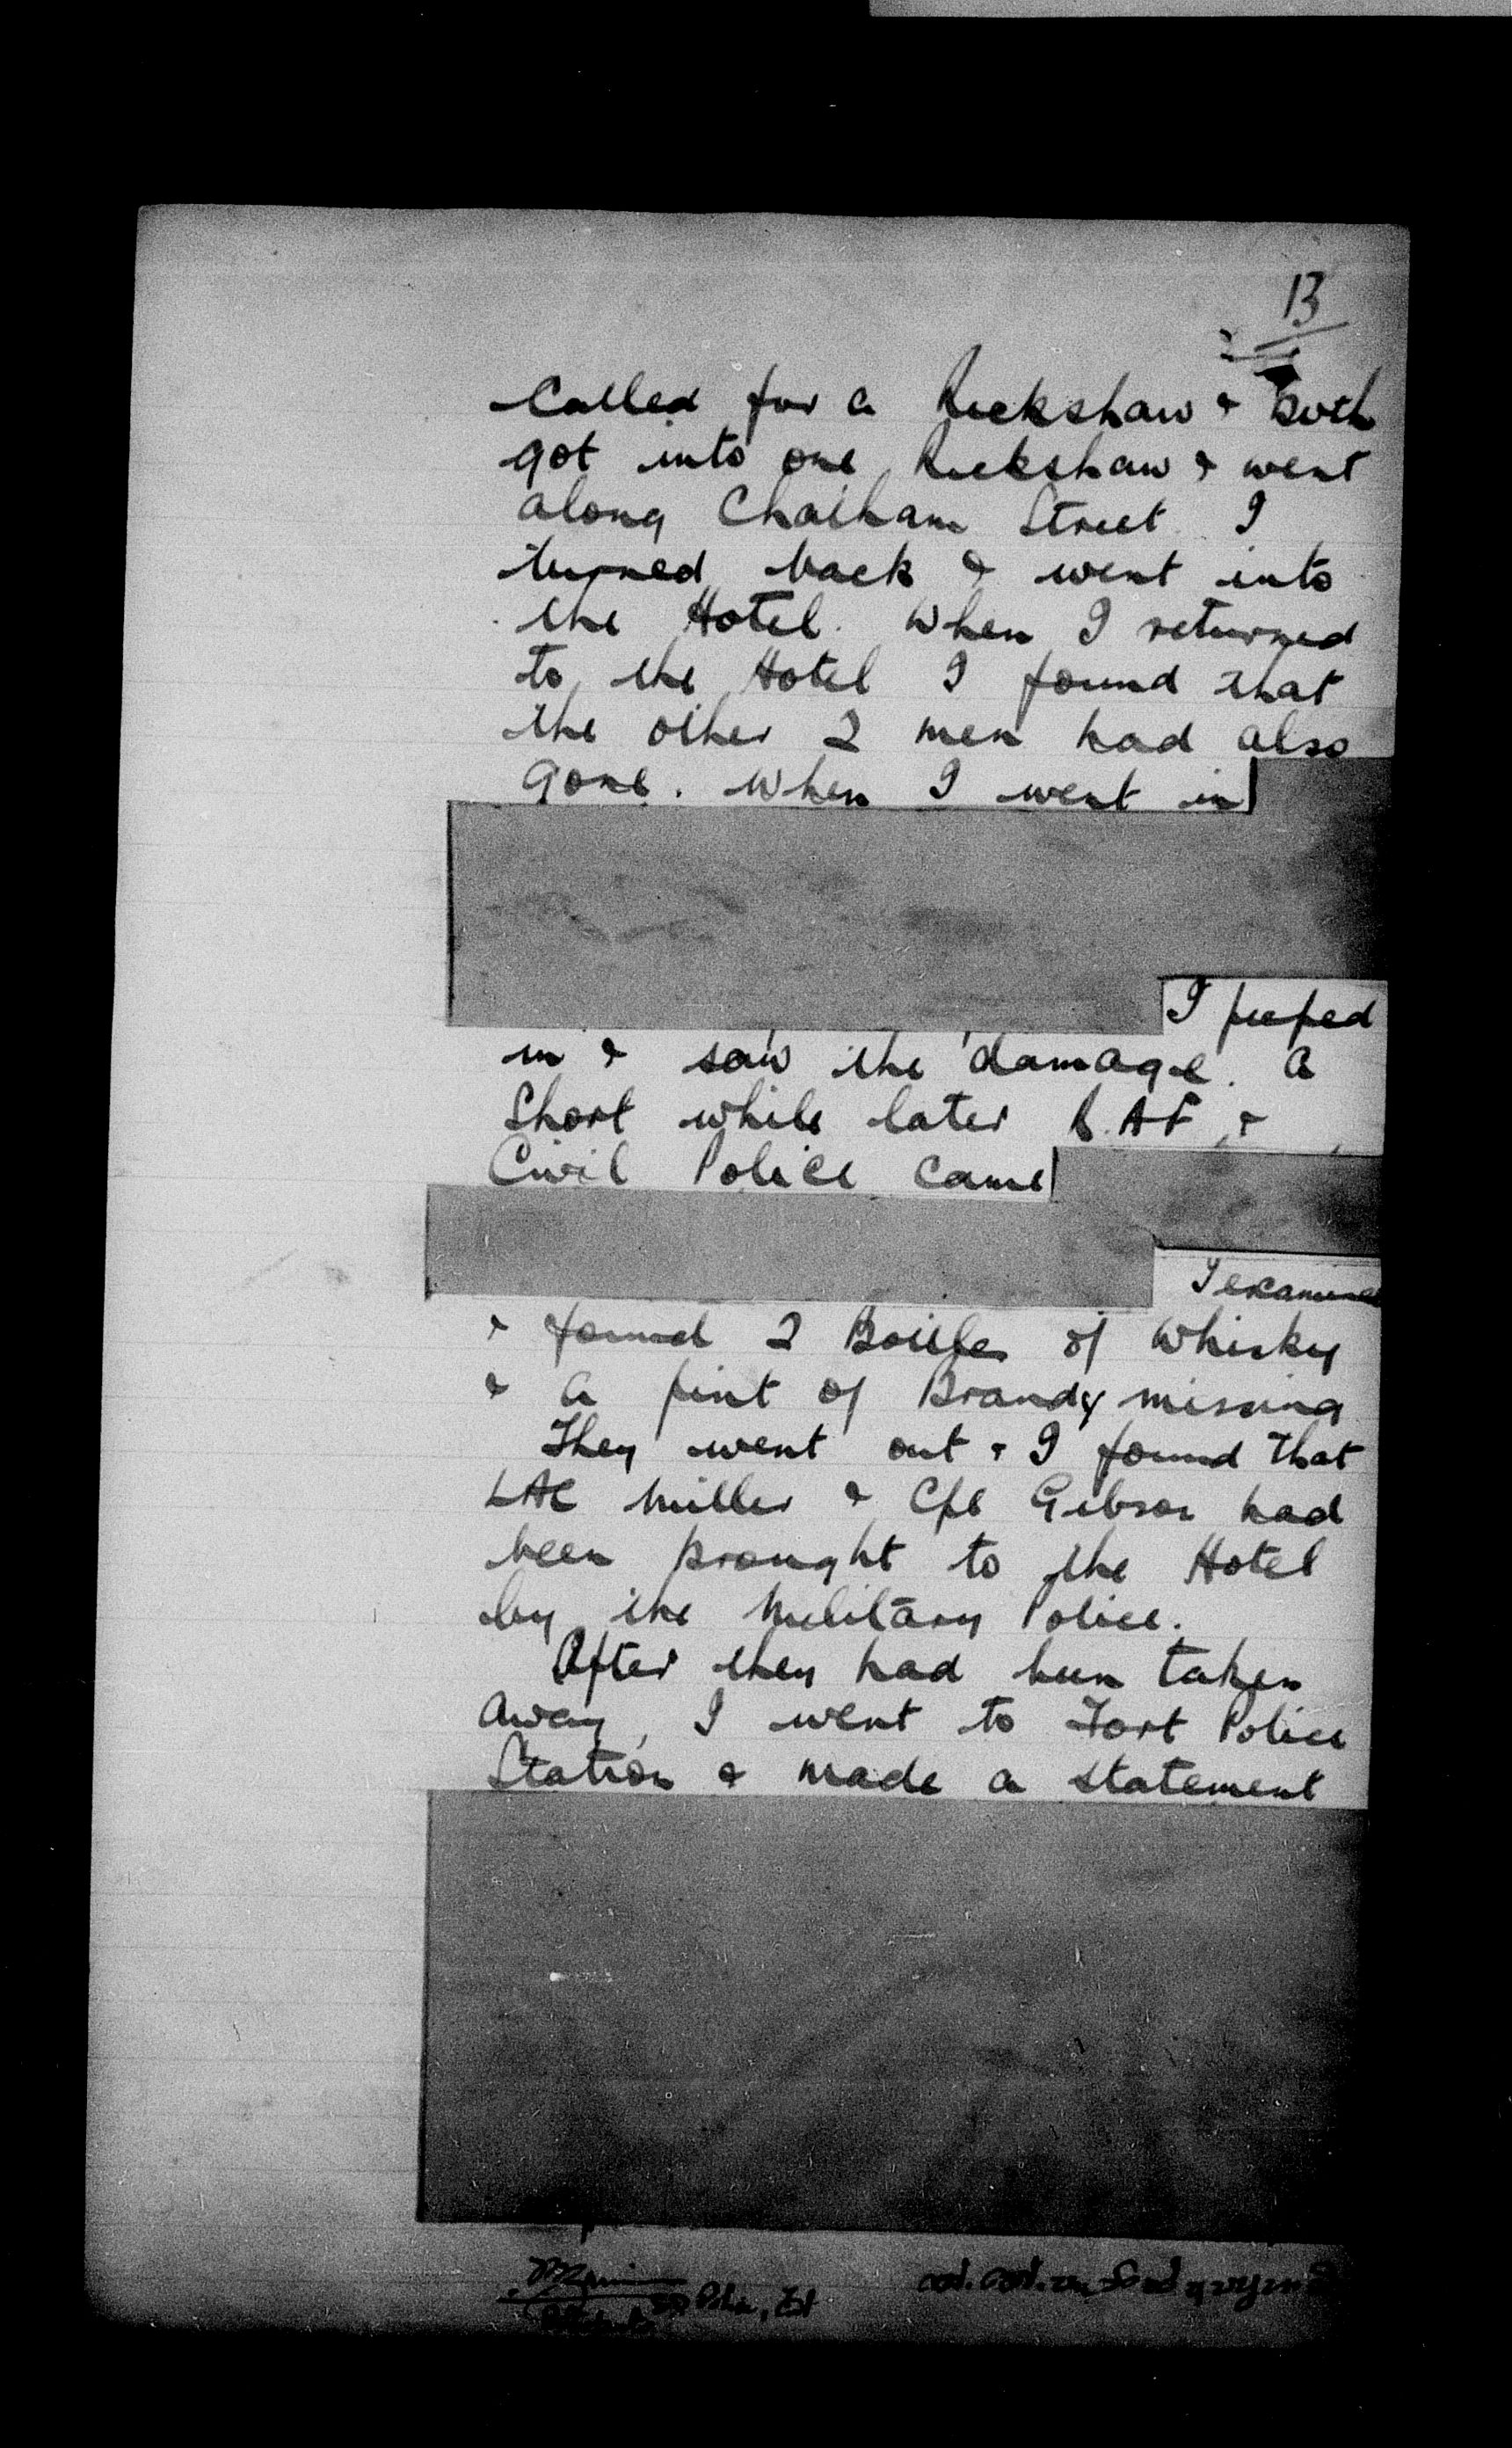 13
Called for a Rickshaw & Both
got into one Rickshaw & went
along Chatham Street. I
turned back & went into
the Hotel. When I returned
to the Hotel I found that
the other 2 men had also
gone. When I went in
I peeped
in & saw the damage. A
short while later R.A.F. &
Civil Police came
I examined
& found 2 Bottles of Whisky
& a pint of Brandy missing
They went out & I found that
LAC Miller & Cpl Gibson had
been brought to the Hotel
by the Military Police.
After they had been taken
away, I went to Fort Police
Station & made a statement
Police, Fort